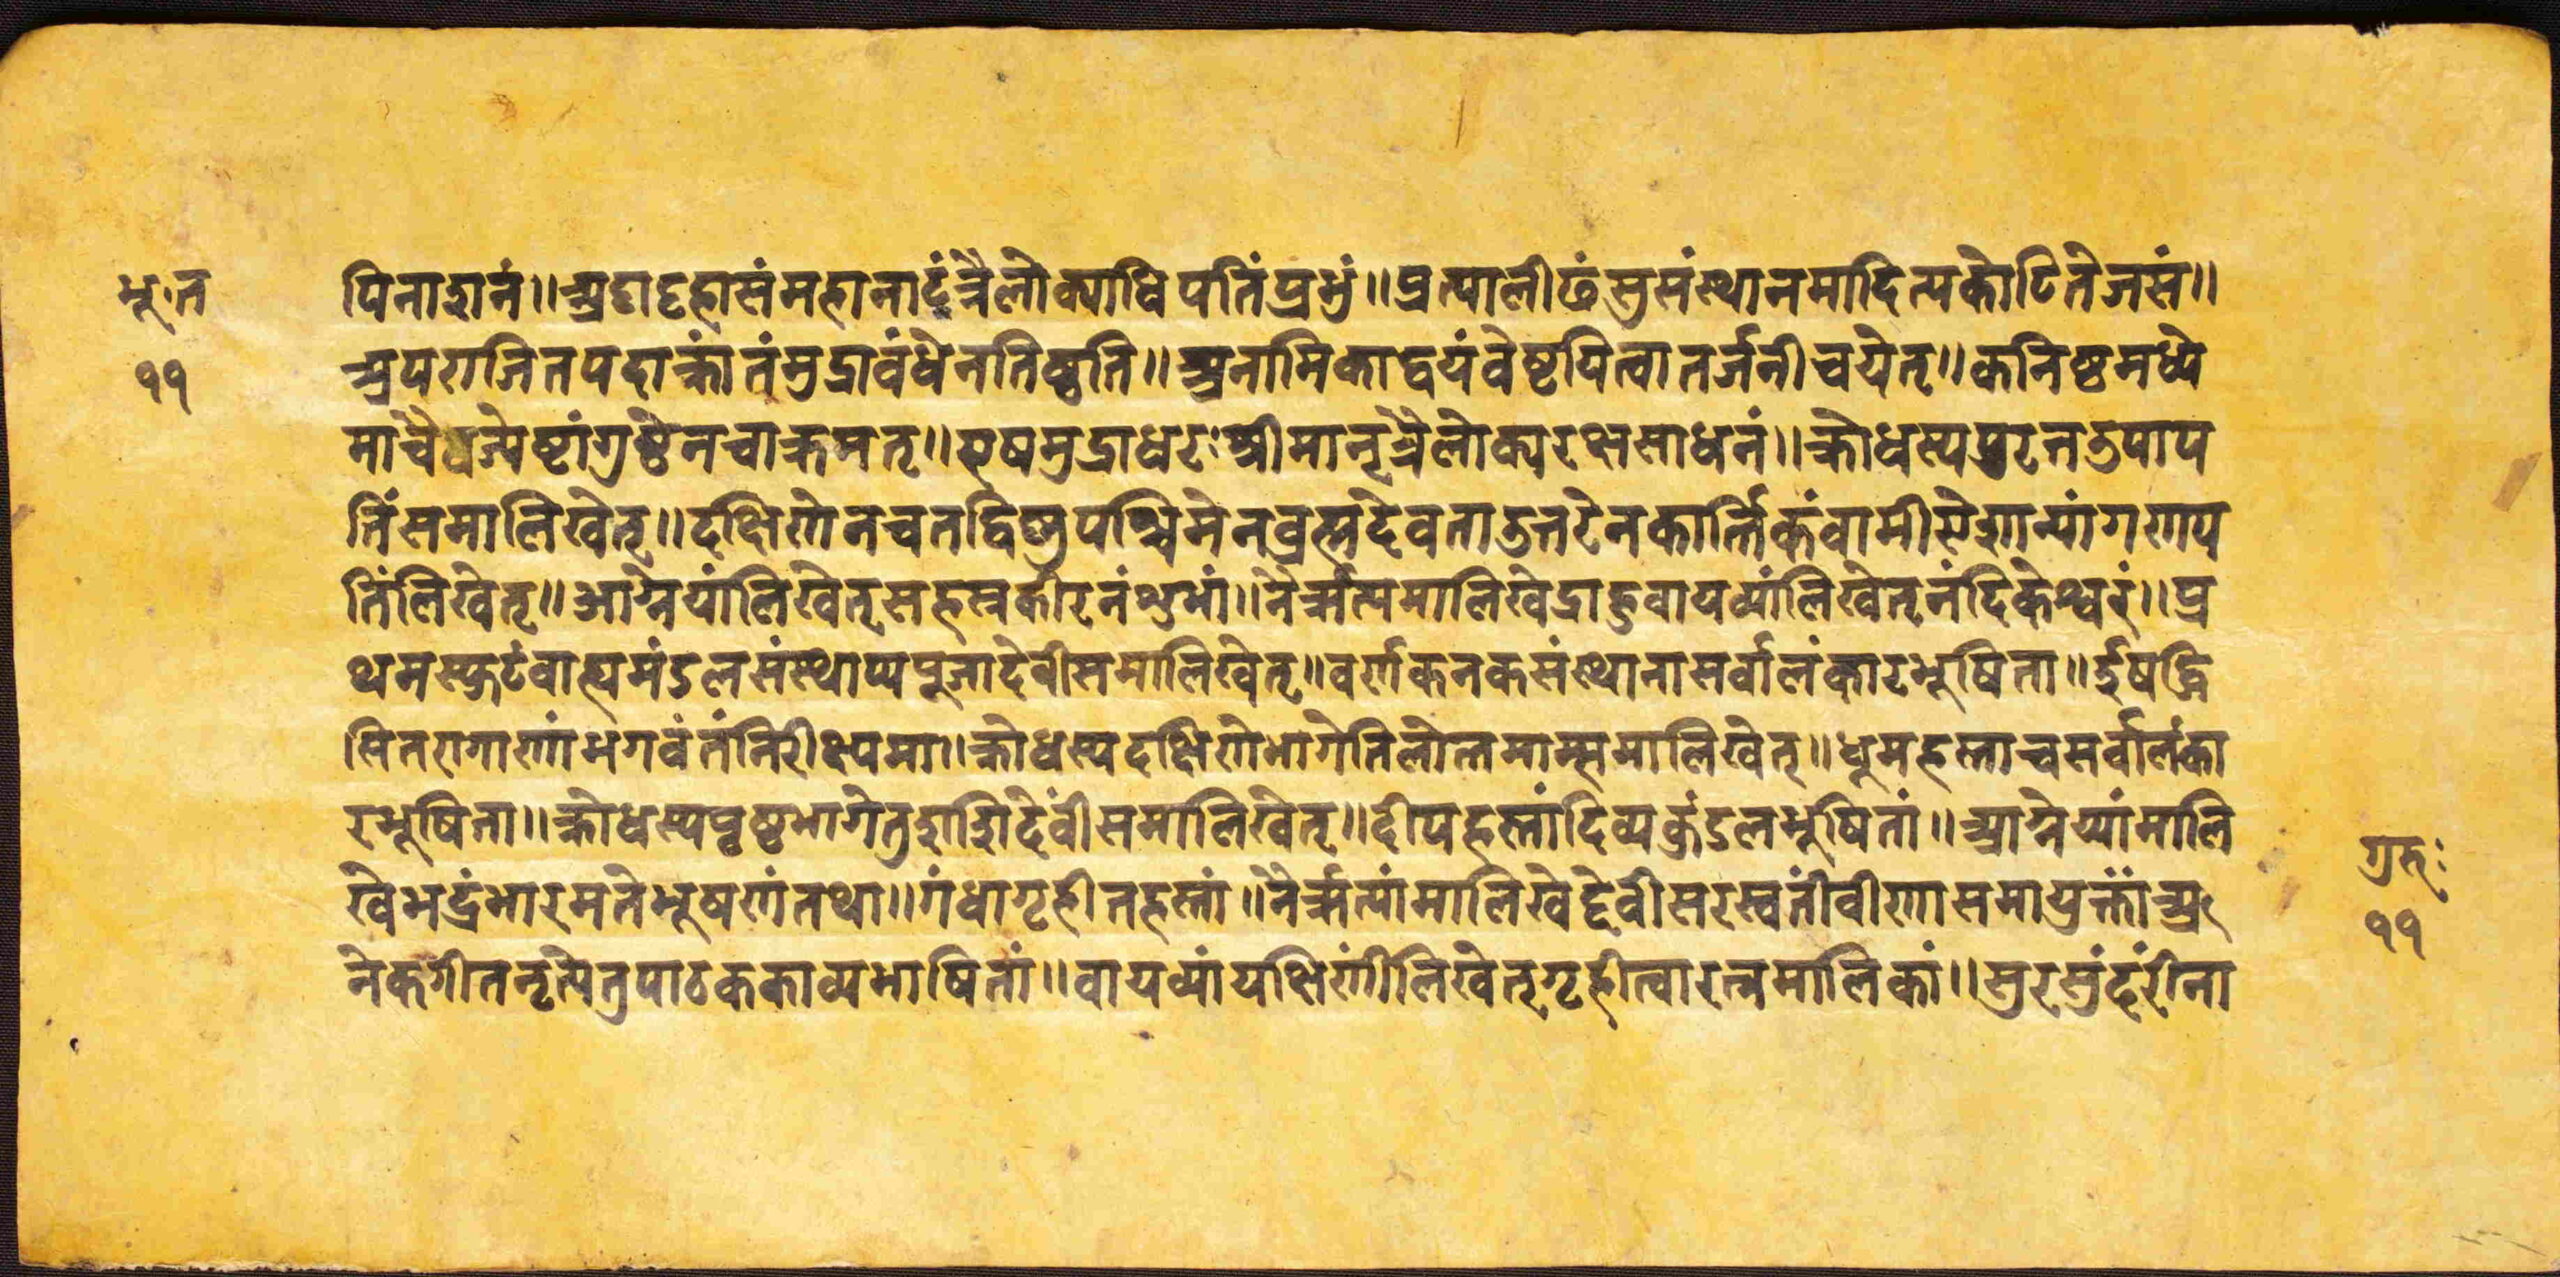 भू॰त
११
पिनाशनं॥अट्टाट्टहासंमहानादंत्रैलोक्याधिपतिंप्रभुं॥प्रत्यालीढंसुसंस्थानमादित्यकोटितेजसं॥
अपराजितपदाक्रांतंमुद्रावंधेनतिष्ठति॥अनामिकाद्वयंवेष्टयित्वातर्जनीचयेत्॥कनिष्ठमध्ये
माचैवज्येष्टांगुष्ठेनचाक्रमत्॥एषमुद्राधरःश्रीमान्त्रैलोक्यरक्षसाधनं॥क्रोधस्यपुरनउपाप
तिंसमालिखेत्॥दक्षिणेनचतद्विष्णुपश्चिमेनव्रह्मदेवताउत्तरेनकार्त्तिकंवामीसेशान्यांगणप
तिंलिखेत्॥आग्नेयांलिखेत्सहस्रकीरनंशुभां॥नैरृत्यमालिखेद्राहुवायव्यांलिखेत्नंदिकेश्वरं॥प्र
थमस्फुटंवाह्यमंडलसंस्थाप्यपूजादेवीसमालिखेत्॥वर्णकनकसंस्थानासर्वालंकारभूषिता॥ईषद्धि
सितरागाणांभगवंतंनिरीक्ष्यमा॥क्रोधस्यदक्षिणेभागेतिलोत्तमाम्समालिखेत्॥धूमहस्ताचसर्वालंका
रभूषिता॥क्रोधस्यपृष्ठभागेतुशशिदेवींसमालिखेत्॥दीपहस्तांदिव्यकुंडलभूषितां॥आग्नेय्यांमालि
खेभद्रंभारमतेभूषणंतथा॥गंधागृहीतहस्तां॥नैरृत्यांमालिखेद्देवीसरस्वतींवीणासमायुक्तांअ
नेकगीतनृत्येतुपाठककाव्यभाषितां॥वायव्यांयक्षिणींलिखेत्गृहीत्वारत्नमालिकां॥सुरसुंदरींना
गुरुः
११